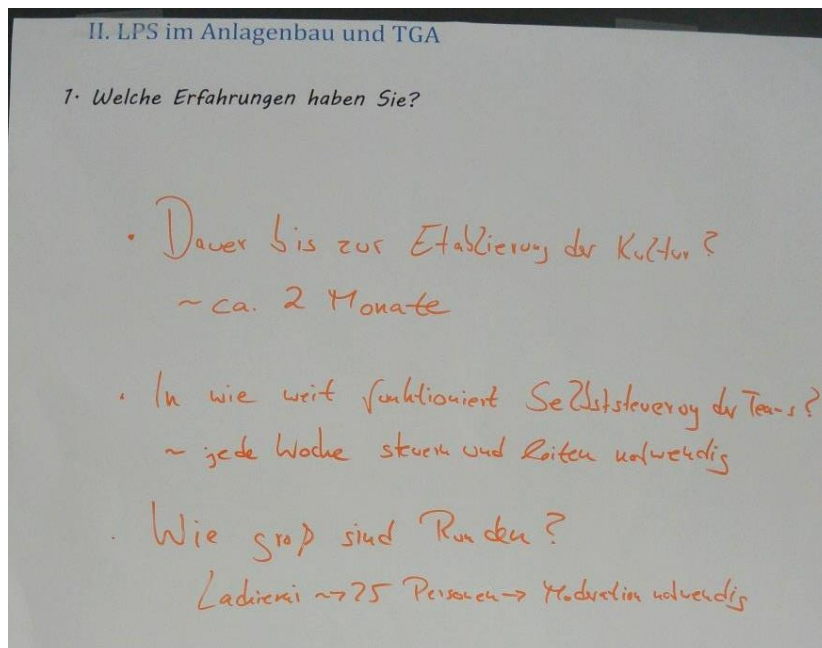 II. LPS im Anlagenbau und TGA
1. Welche Erfahrungen haben Sie?
• Dauer bis zur Etablierung der Kultur?
~ ca. 2 Monate
• In wie weit funktioniert Selbststeuerung der Teams?
~ jede Woche steuern und leiten notwendig
• Wie groß sind Runden?
Lackiererei ~> 25 Personen -> Moderation notwendig